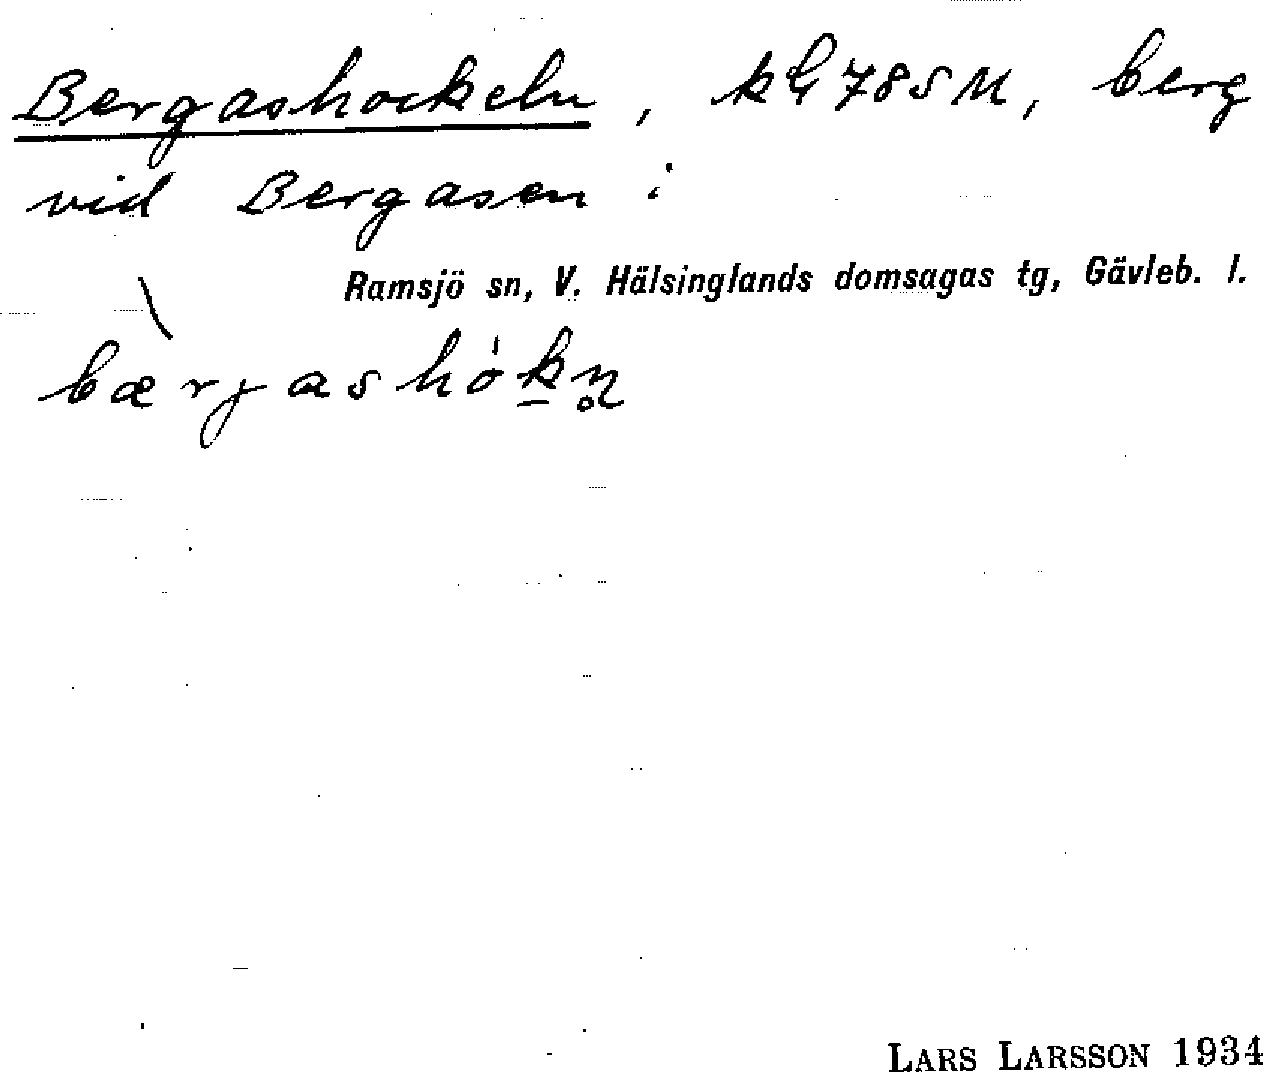 Bergashockeln, kh 785 M, berg
vid Bergasen i
Ramsjö sn, V. Hälsinglands domsagas tg, Gävleb. l.
bærgashòḵn̥
LARS LARSSON 1934